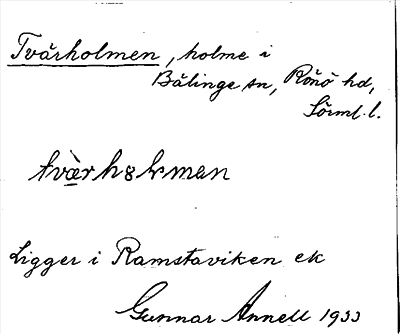 Tvärholmen, holme i
Bälinge sn, Rönö hd,
Sörml. l.
tvὰrh8lmən
Ligger i Ramstaviken ek
Gunnar Annell 1933